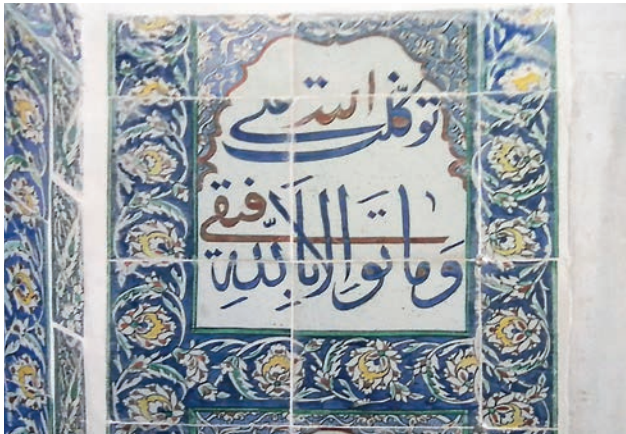 توكلت على الله
وما توفيقى الا بالله